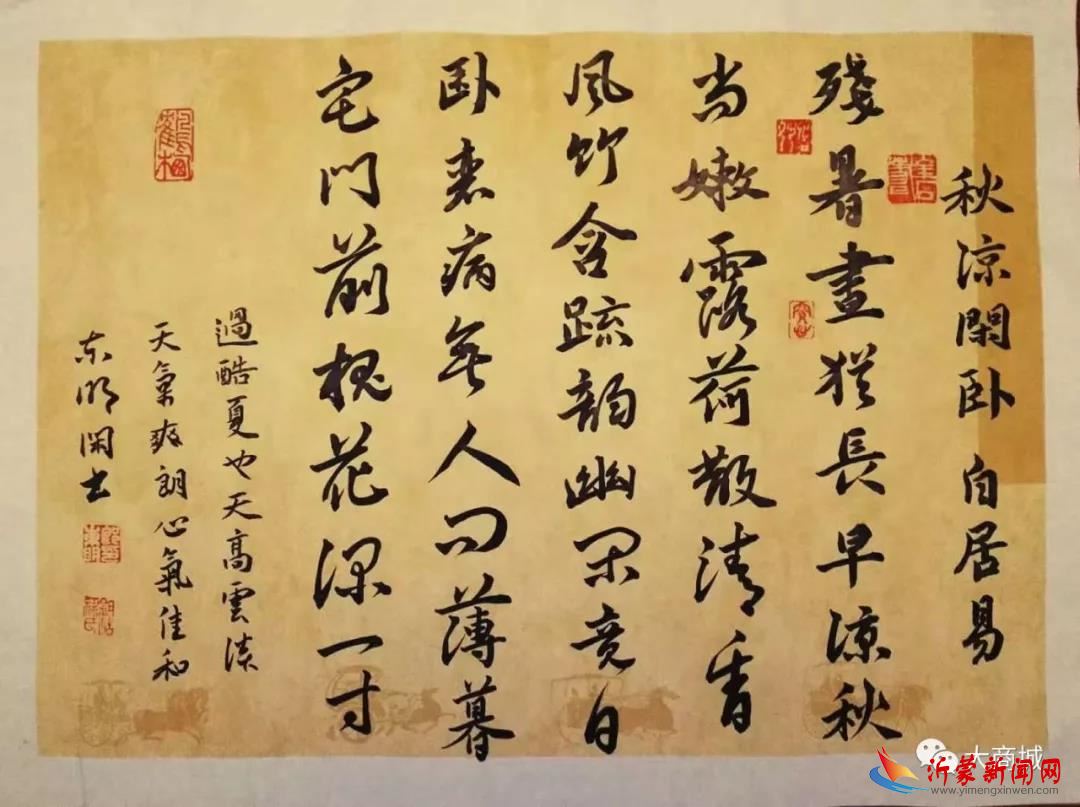 秋涼閑卧 白居易
殘暑晝猶長早涼秋
尚嫩露荷散清香
風竹含疏韻幽閑竟日
卧衰病無人問薄暮
宅門前槐花深一寸
過酷夏也天高雲淡
天氣爽朗心氣佳和
东明閑士
大商城
沂蒙新闻网
www.yimengxinwen.com